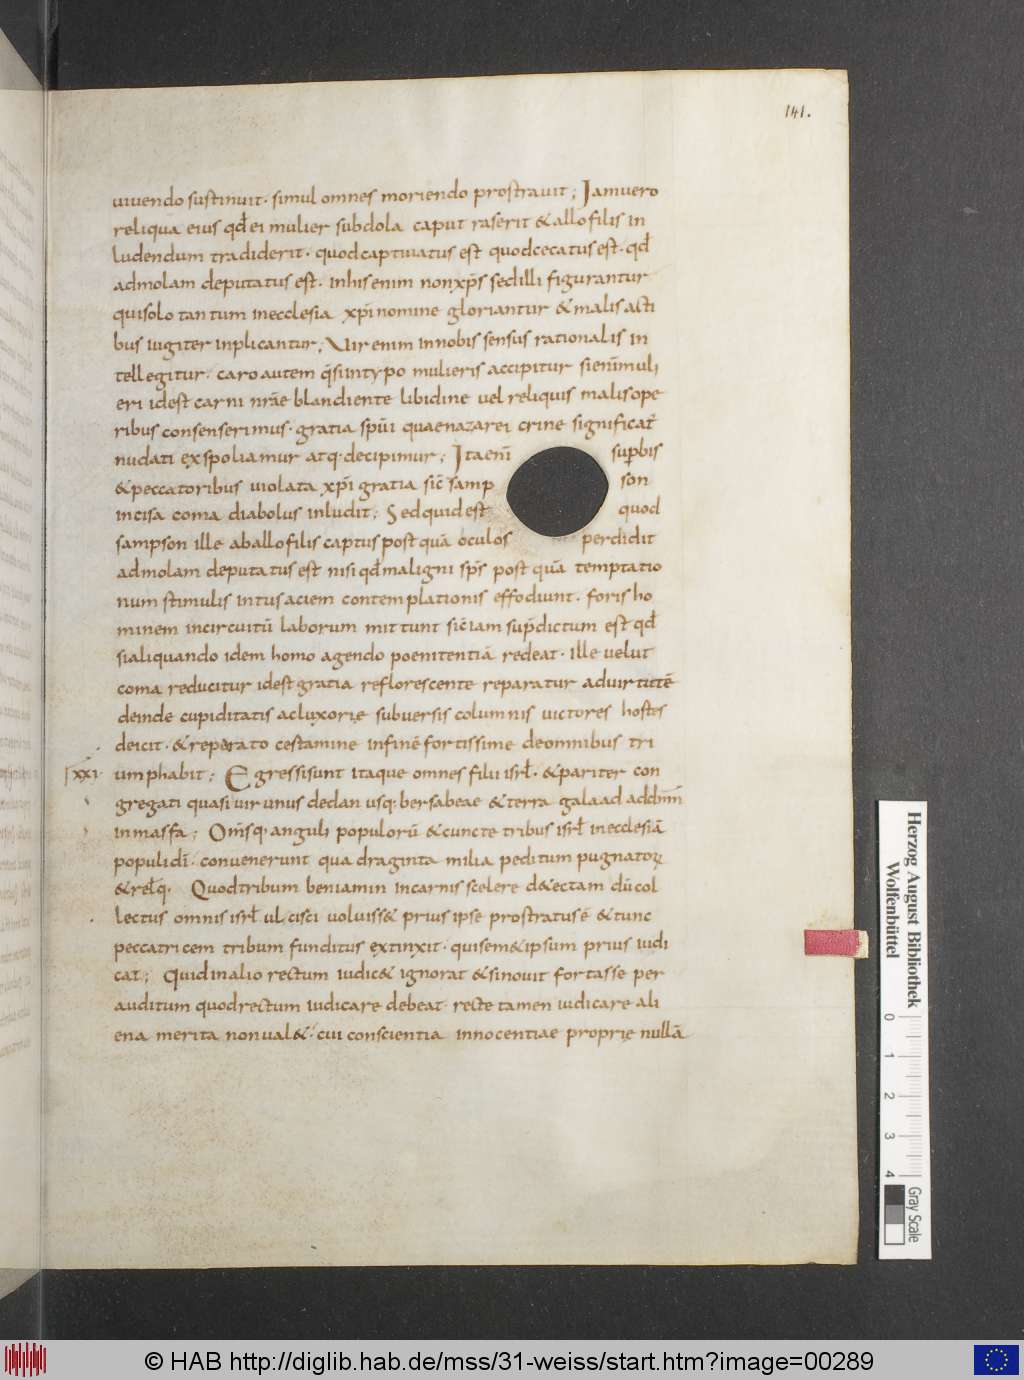 141.
uiuendo sustinuit· simul omnes moriendo prostrauit; Iamuero
reliqua eius qđ ei mulier subdola caput raserit & allofilis in
ludendum tradiderit· quodcaptiuatus est quodcecatus est· qđ
admolam deputatus est· inhis enim non xp̄s sed illi figurantur
quisolo tantum inecclesia xp̄i nomine gloriantur & malis acti
bus iugiter inplicantur; Uir enim innobis sensus rationalis in
tellegitur· caro autem q̄siintypo mulieris accipitur sienīmuli
eri idest carni nr̄ae blandiente libidine uel reliquis malis ope
ribus consenserimus· gratia sp̄ui quaenazarei crine significat᷎
nudati ęxspoliamur atq· decipimur; Ita enī sup̱bis
& peccatoribus uiolata xp̄i gratia sic̄ samp son
incisa coma diabolus inludit; Sedquid est quod
sampson ille aballofilis captus post quā oculos perdidit
admolam deputatus est nisi qđ maligni sp̄s post quā temptatio
num stimulis intus aciem contemplationis effodiunt· foris ho
minem incircuitū laborum mittunt sic̄ iam sup̄dictum est qđ
sialiquando idem homo agendo poenitentiā redeat· ille uelut
coma reducitur idest gratia reflorescente reparatur aduirtutē
deinde cupiditatis acluxorię subuersis columnis uictores hostes
deicit· & reperato cestamine infinē fortissime deomnibus tri
xxi
umphabit; Egressisunt itaque omnes filii isrł· & pariter con
gregati quasi uir unus dedan usq· bersabeae & terra galaad addn̄m
inmasfa; Om̄sq· anguli populorū & cuncte tribus isrł inecclesiā
populi dī· conuenerunt quadraginta milia peditum pugnatoꝝ
& relq· Quodtribum beniamin incarnis scelere d&ectam dū col
lectus omnis isrł ulcisci uoluiss& prius ipse prostratus ē & tunc
peccatricem tribum funditus ęxtinxit· quisem&ipsum prius iudi
cat; Quid inalio rectum iudic& ignorat & sinouit fortasse per
auditum quodrectum iudicare debeat· recte tamen iudicare ali
ena merita nonual&· cui conscientia innocentiae proprię nullā
Herzog August Bibliothek
Wolfenbüttel
0 1 2 3 4
Gray Scale
© HAB http://diglib.hab.de/mss/31-weiss/start.htm?image=00289